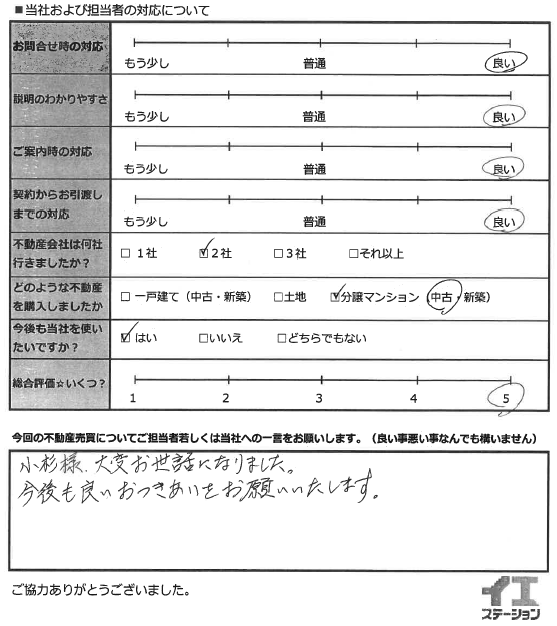 ■当社および担当者の対応について
お問合せ時の対応
もう少し 普通 良い
説明のわかりやすさ
もう少し 普通 良い
ご案内時の対応
もう少し 普通 良い
契約からお引渡し
までの対応
もう少し 普通 良い
不動産会社は何社
行きましたか？
□1社 ☑2社 □3社 □それ以上
どのような不動産
を購入しましたか
□一戸建て（中古・新築） □土地 ☑分譲マンション（中古・新築）
今後も当社を使い
たいですか？
☑はい □いいえ □どちらでもない
総合評価☆いくつ？
1 2 3 4 5
今回の不動産売買についてご担当者若しくは当社への一言をお願いします。（良い事悪い事なんでも構いません）
小杉様、大変お世話になりました。
今後も良いおつきあいをお願いいたします。
ご協力ありがとうございました。
イエ
ステーション